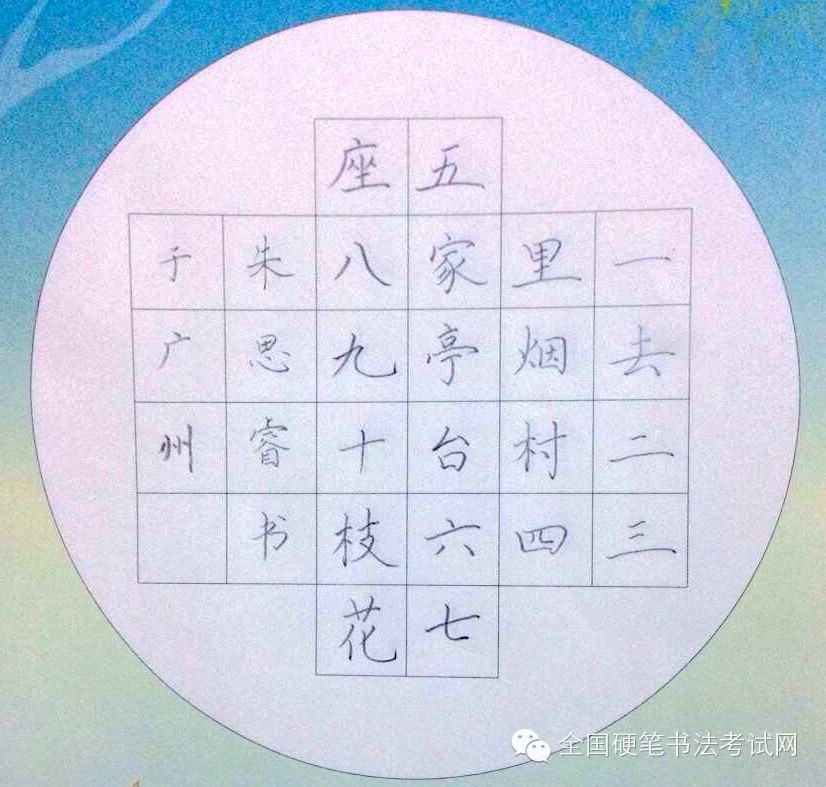 一去二三
里烟村四
五家亭台六七
座八九十枝花
朱思睿书
于广州
全国硬笔书法考试网